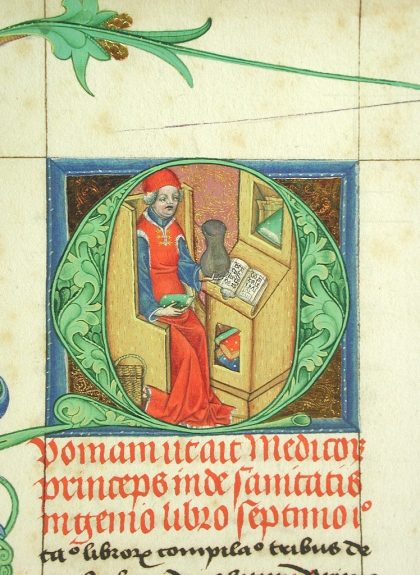 Quoniam ut ait Medicorꝝ
princeps in de sanitatis
ingenio libro septimo i°
ta° librorꝝ compila° tribus de